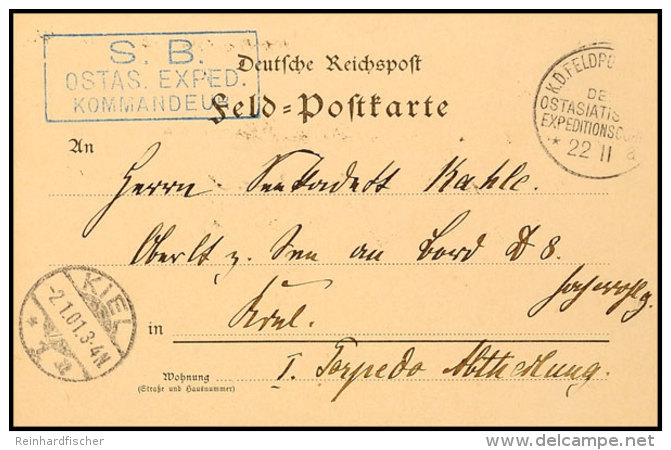 S. B.
OSTAS. EXPED.
KOMMANDEUR
Deutsche Reichspost
Feld=Postkarte
K.D.FELDPO
DE
OSTASIATIS
EXPEDITIONSCO
* 22 11 a
An
Herrn Kahle.
an Bord 8.
KIEL
-2.1.01.3-4N.
* 1 a
in Kiel.
Wohnung
(Straße und Hausnummer)
I. Torpedo Abtheilung.
Reinhardfischer
www.delcampe.net